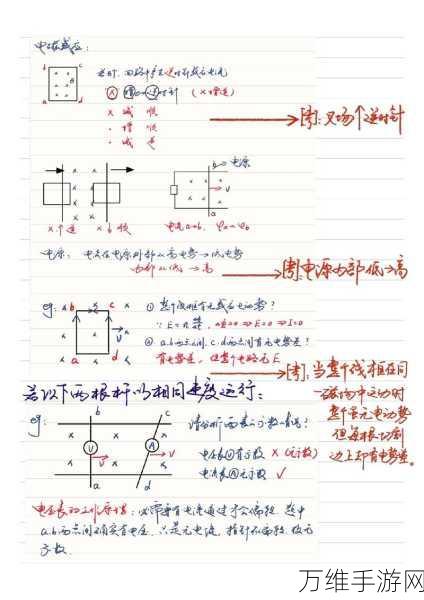 电磁感应:
b c
a d
B
此时,回路中产生逆时针感应电流
Ⓧ 增 逆时针 (×增逆)
× 减 顺
· 增 顺
· 减 逆
→[考]:叉场个逆时针
→电源
v
a
×个逆 × b 顺 电流a→b, φa→φb
电源: 电流在电源外部从高电势→低电势
内部从低→高
→[考]:电源内部低→高
eg:
b c
a d
v
① 整个线框有无感应电动势?
∵ E=n, ΔΦ=0 ⇒ E=0 ⇒ I=0
② a.b两点间, c.d两点间有无电势差?
有电势差, 但整个电路无E
→[考]:当整个线框在同
一磁场中运动时
整个是无电动势
但每根切割
边上却有电势差。
若以下两根杆以相同速度运行:
eg:
b c
V A
v v
a d
请分析两表示数情况?
电压表Ⓥ有示数 × (无示数)
电流表Ⓐ无示数 ✓
电压表的工作原理: 必须要有电流通过才会偏转. 题中
a.b两点间确实有电压, 只是无电流, 指针不偏转, 故无
示数.
万维手游网